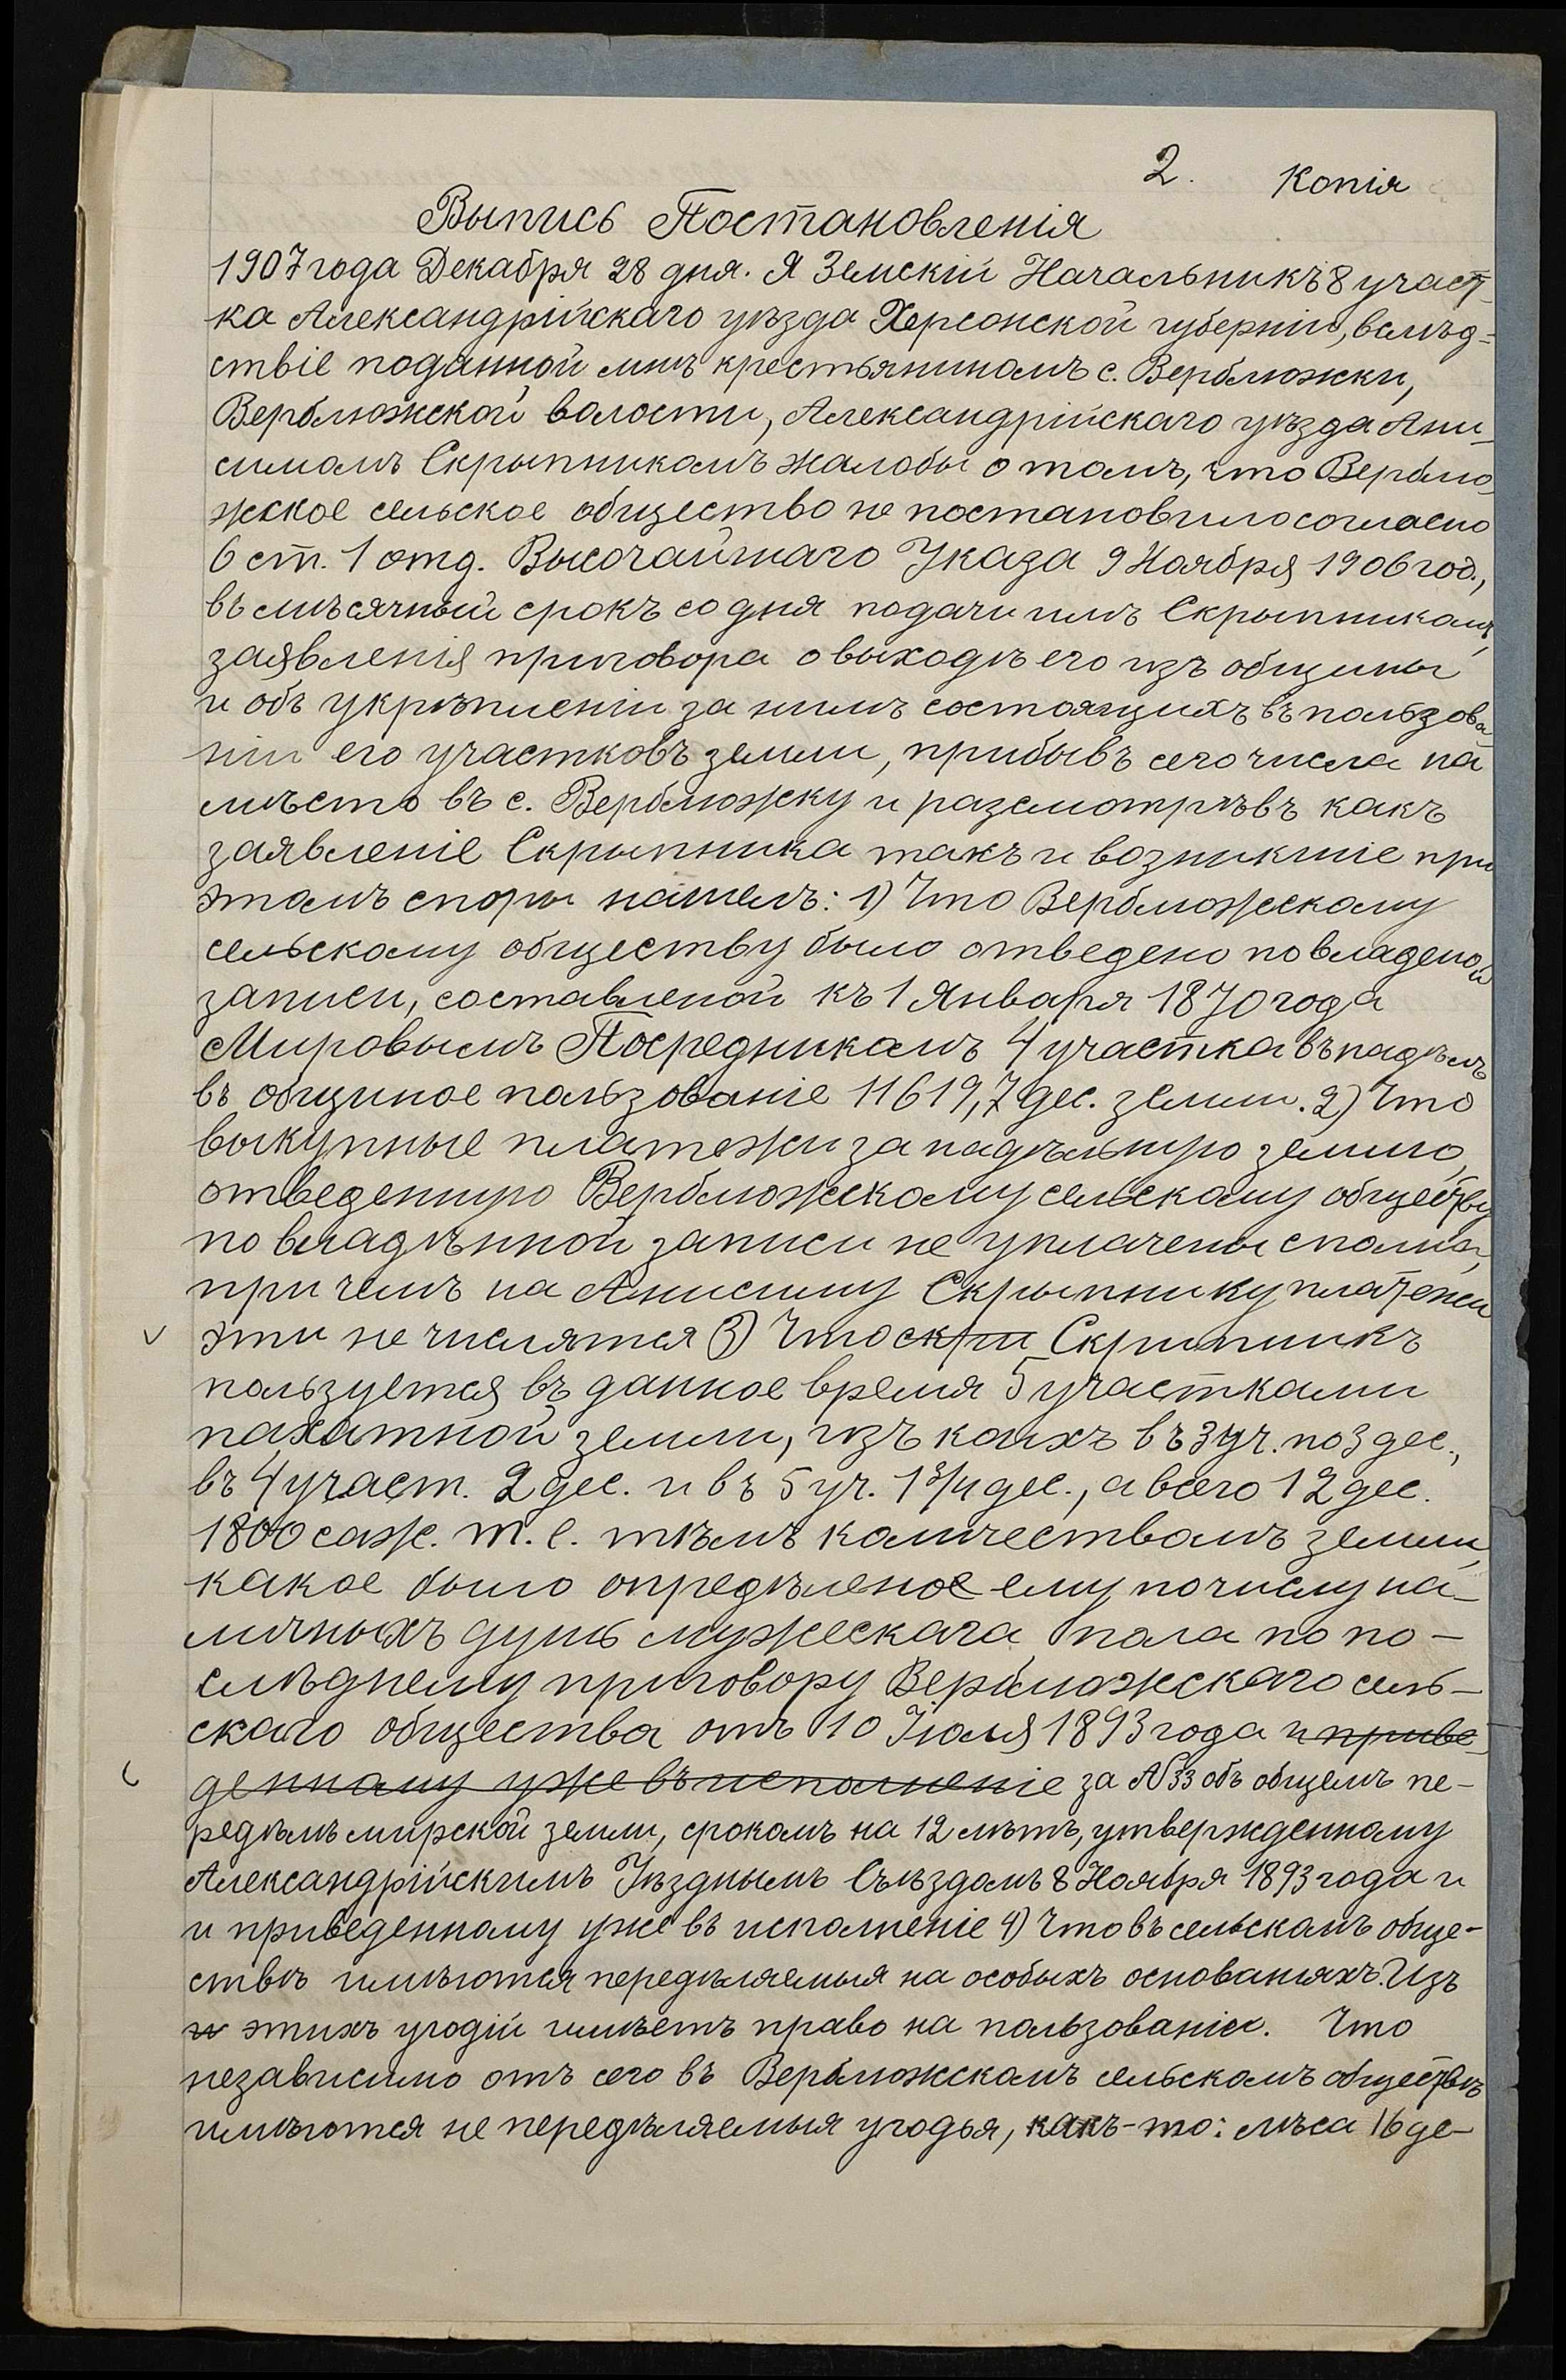 2. Копія
Выпись Постановленія
1907 года Декабря 28 дня. Я Земскій Начальникъ 8 участ-
ка Александрійскаго уѣзда Херсонской губерніи, вслѣд-
ствіе поданной мнѣ крестьяниномъ с. Верблюжки,
Верблюжской волости, Александрійскаго уѣзда Ани-
симомъ Скрыпникомъ жалобы о томъ, что Верблю-
жское сельское общество не постановило согласно
6 ст. 1 отд. Высочайшаго Указа 9 Ноября 1906 год.,
въ мѣсячный срокъ со дня подачи имъ Скрыпникомъ,
заявленія приговора о выходѣ его изъ общины
и объ укрѣпленіи за нимъ состоящихъ въ пользова
ніи его участковъ земли, прибывъ сего числа на
мѣсто въ с. Верблюжку и разсмотрѣвъ какъ
заявленіе Скрыпника такъ и возникшіе при
этомъ споры нашелъ: 1) Что Верблюжскому
сельскому обществу было отведено по владеной
записи, составленой къ 1 Января 1870 года
Мировымъ Посредникомъ 4 участка въ надѣлъ
въ общиное пользованіе 11619,7 дес. земли. 2) Что
выкупные платежи за надѣльную землю,
отведенную Верблюжскому сельскому обществу
по владѣнной записи не уплачены сполна,
при чемъ на Анисиму Скрыпнику платежи
эти не числятся 3) Что скри Скрипникъ
пользуется въ данное время 5 участками
пахатной земли, изъ коихъ въ 3 уч. по 3 дес.,
въ 4 участ. 2 дес. и въ 5 уч. 1 3/4 дес., а всего 12 дес.
1800 саж. т. е. тѣмъ количествомъ земли,
какое было опредѣленое ему по числу на-
личныхъ душъ мужескаго пола по по-
слѣднему приговору Верблюжскаго сель-
скаго общества отъ 10 Іюля 1893 года и приве-
денному уже въ исполненіе за №33 объ общемъ пе-
редѣлѣ мирской земли, срокомъ на 12 лѣтъ, утвержденному
Александрійскимъ Уѣзднымъ Съѣздомъ 8 Ноября 1893 года и
и приведенному уже въ исполненіе 4) Что въ сельскомъ обще-
ствѣ имѣются передѣляемыя на особыхъ основаніяхъ. Изъ
и этихъ угодій имѣетъ право на пользованіе. Что
независимо отъ сего въ Верблюжскомъ сельскомъ обществѣ
имѣются не передѣляемыя угодья, какъ-то: лѣса 16 де-